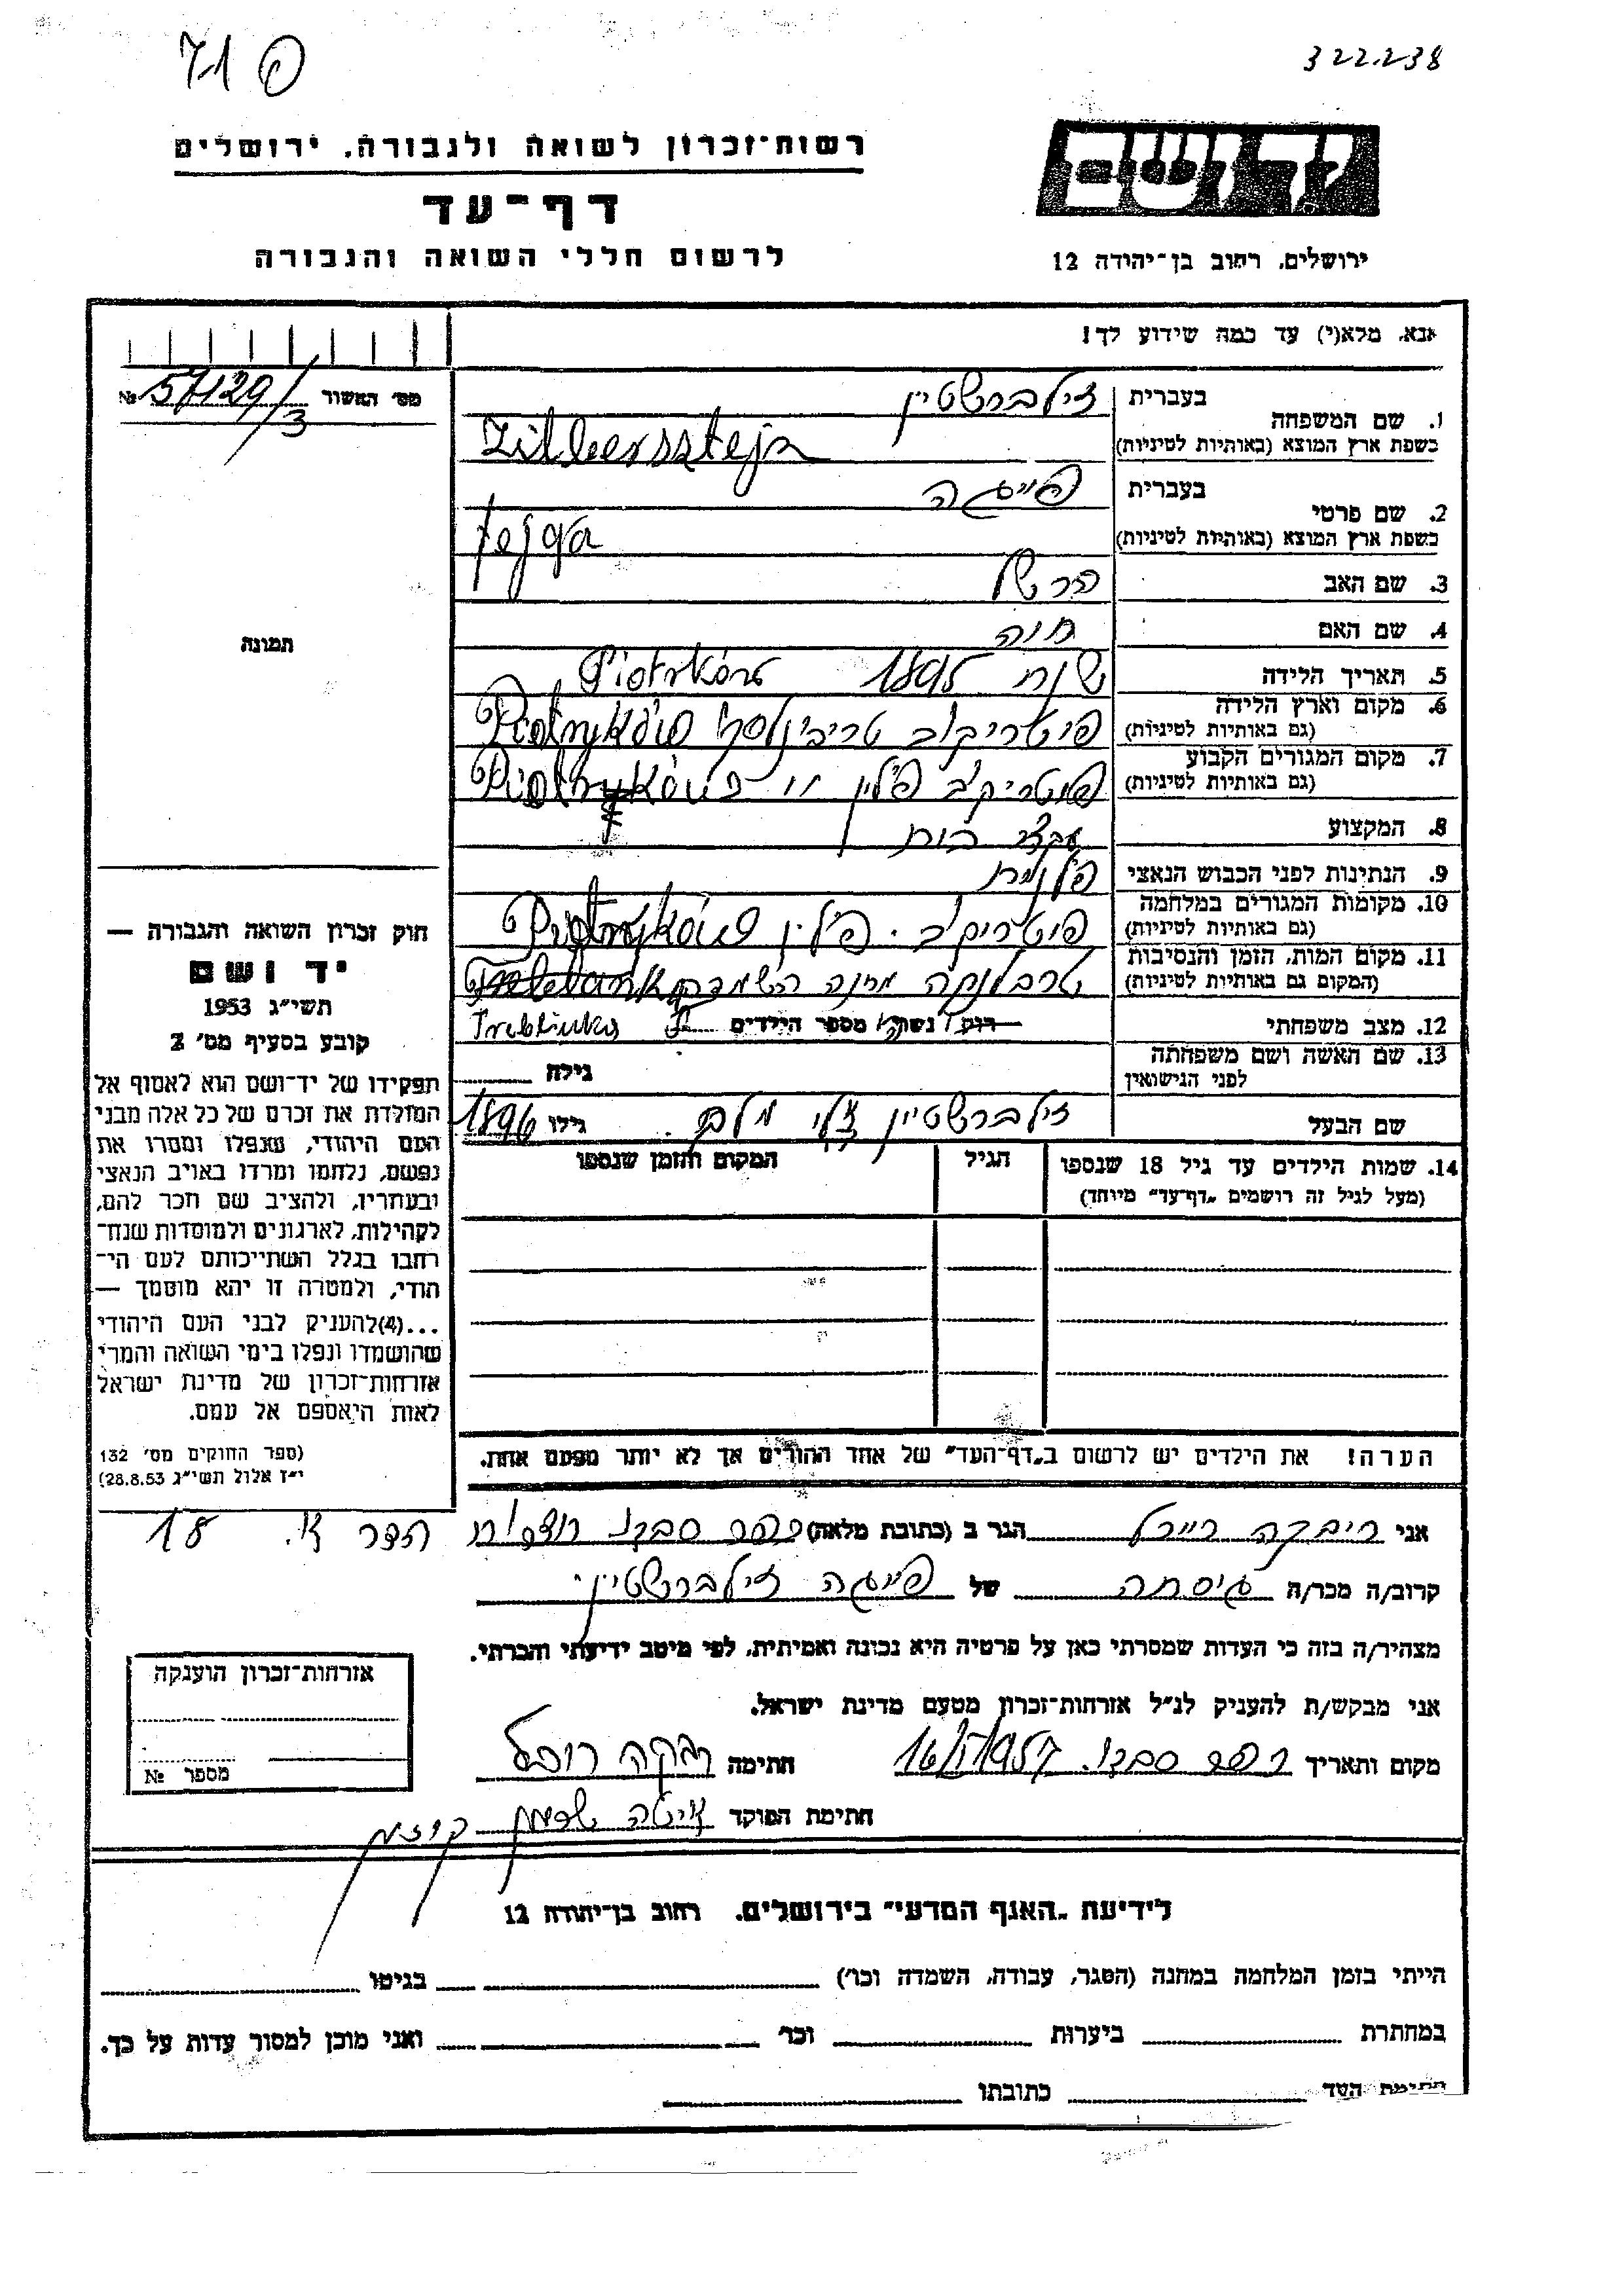 71 פ
322238
רשות-זכרון לשואה ולגבורה, ירושלים
דף-עד
לרשום חללי השואה והגבורה
יד ושם
ירושלים, רחוב בן-יהודה 12
אנא, מלא(י) עד כמה שידוע לך!
מס' האשור № 57129/3
1. שם המשפחה בעברית זילברשטיין
בשפת ארץ המוצא (באותיות לטיניות) Zilbersztejn
2. שם פרטי בעברית פייגה
בשפת ארץ המוצא (באותיות לטיניות) fejga
3. שם האב הרשל
4. שם האם חיה
5. תאריך הלידה שנת 1895 Piotrków
6. מקום וארץ הלידה
(גם באותיות לטיניות) פיוטריקוב טריבונלסקי Piotryków
7. מקום המגורים הקבוע
(גם באותיות לטיניות) פיוטריקוב פולין Piotryków
8. המקצוע עקרת בית
9. הנתינות לפני הכבוש הנאצי פולנית
10. מקומות המגורים במלחמה
(גם באותיות לטיניות) פיוטריקוב. פולין Piotryków
11. מקום המות, הזמן והנסיבות
(המקום גם באותיות לטיניות) טרבלינקה מחנה השמדה
12. מצב משפחתי רוק/ נשוי/אה מספר הילדים Treblinka
13. שם האשה ושם משפחתה
לפני הנישואין גילה
שם הבעל זילברשטיין מלך. גילו 1896
14. שמות הילדים עד גיל 18 שנספו
(מעל לגיל זה רושמים "דף-עד" מיוחד)
הגיל
המקום והזמן שנספו
הערה! את הילדים יש לרשום ב"דף-העד" של אחד ההורים אך לא יותר מפעם אחת.
תמונה
חוק זכרון השואה והגבורה —
יד ושם
תשי"ג 1953
קובע בסעיף מס' 2
תפקידו של יד-ושם הוא לאסוף אל
המולדת את זכרם של כל אלה מבני
העם היהודי, שנפלו ומסרו את
נפשם, נלחמו ומרדו באויב הנאצי
ובעוזריו, ולהציב שם וזכר להם,
לקהילות, לארגונים ולמוסדות שנח-
רבו בגלל השתייכותם לעם הי-
הודי, ולמטרה זו יהא מוסמך —
...(4)להעניק לבני העם היהודי
שהושמדו ונפלו בימי השואה והמרי
אזרחות-זכרון של מדינת ישראל
לאות היאספם אל עמם.
(ספר החוקים מס' 132
י"ז אלול תשי"ג 28.8.53)
אני ריבקה הגר ב (כתובת מלאה) כפר סבא הדר 18
קרוב/ה מכר/ה גיסתה של פייגה זילברשטיין
מצהיר/ה בזה כי העדות שמסרתי כאן על פרטיה היא נכונה ואמיתית, לפי מיטב ידיעתי והכרתי.
אני מבקש/ת להעניק לנ"ל אזרחות-זכרון מטעם מדינת ישראל.
מקום ותאריך כפר סבא. 1957 חתימה רבקה
חתימת הפוקד
אזרחות-זכרון הוענקה
מספר №
לידיעת "האגף המדעי" בירושלים, רחוב בן-יהודה 12
הייתי בזמן המלחמה במחנה (הסגר, עבודה, השמדה וכו') בגיטו
במחתרת ביערות וכו' ואני מוכן למסור עדות על כך.
חתימת העד כתובתו